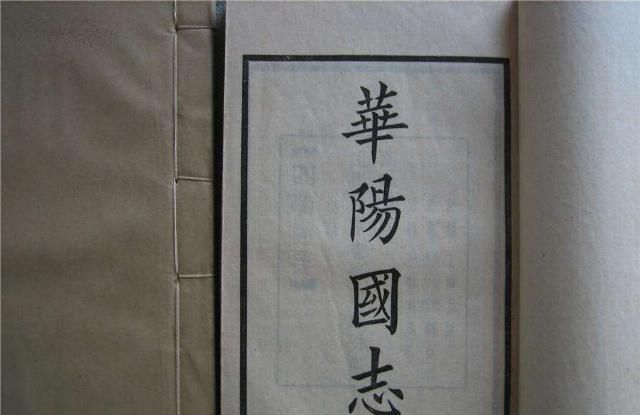 華陽國志